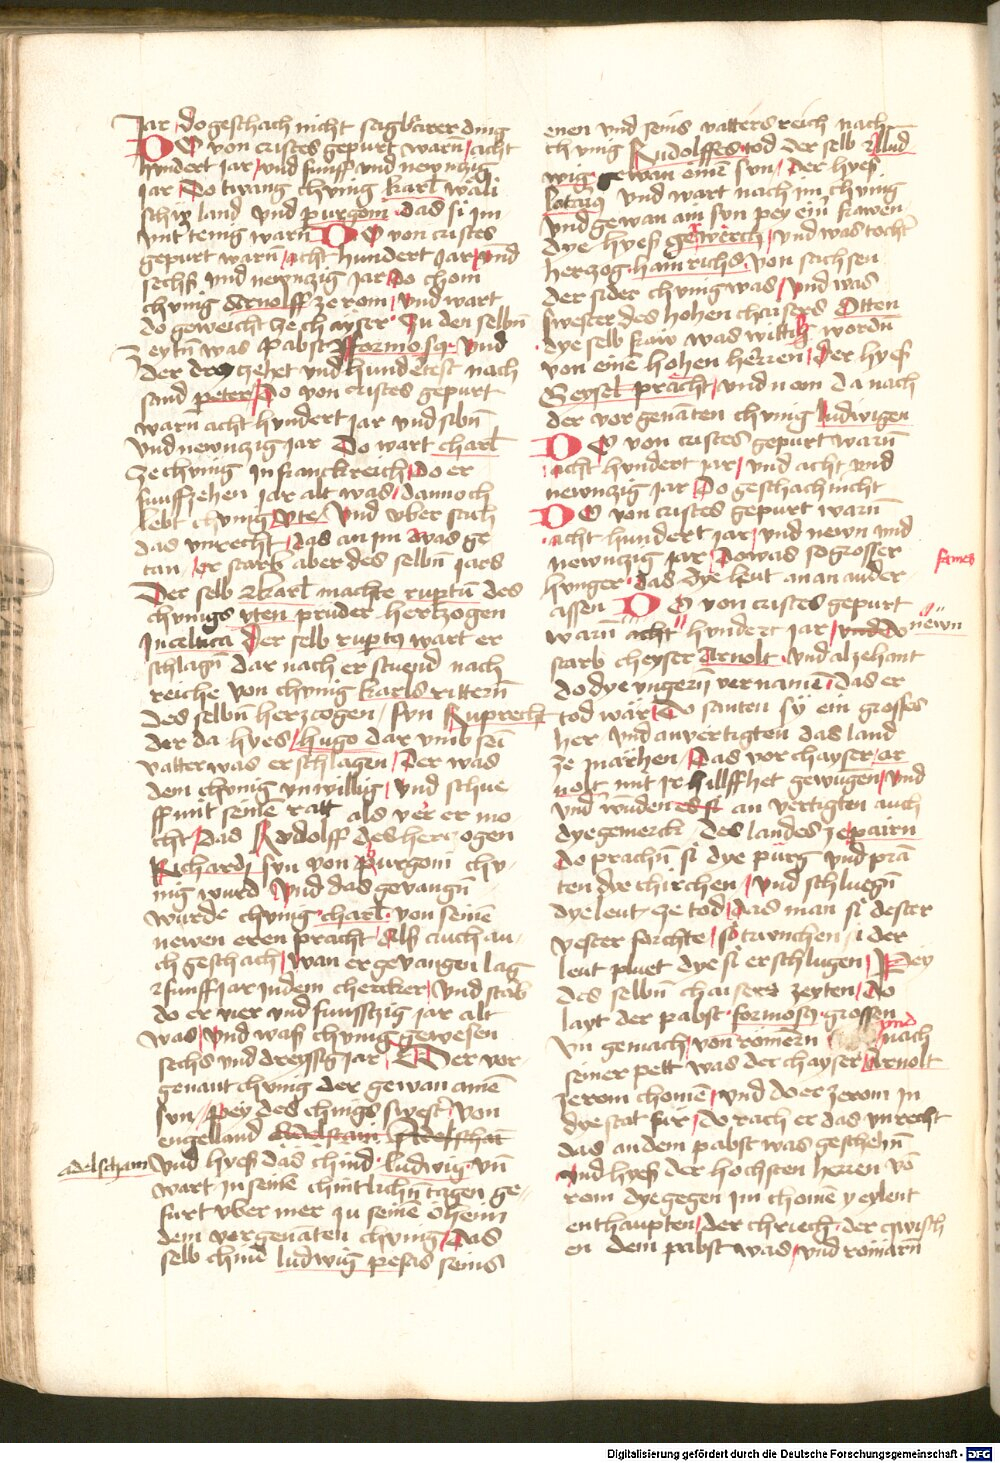 Jar do geschach nicht sagbärer ding
DO von cristes gepurt warn acht
hundert jar vnd funff vnd newnczig
jar Do twang chünig karl wäli
schy land vnd purgom das si im
vnttenig warn DO von cristes
gepurt warn acht hundert jar vnd
sechß vnd newnczig jar Do chom
chünig Arnolff ze rom vnd wart
do geweicht ze chayser Zu den selbn
zeytn was pabst fformosus vnd
der dreyzehet vnd hundetest nach
sand peter Do von cristes gepurt
warn acht hundert jar vnd sibn
vnd newnczig jar Do wart charl
ze chünig in franckreich Do er
funffzehen jar alt was dannoch
lebt chünig Vte vnd vber sach
das vnrecht das an im was ge
tan er starb aber des selbn jars
Der selb karl machte ruptn des
chunigs vten pruder hertzogen
in celtica Der selb ruptus wart er
schlagn dar nach er stuend nach
reiche von chünig karls rittern
des selbn herczogen syn Ruprecht
der da hyes hugo dar vmb sei
vatter was erschlagen Der was
dem chünig vnwillig vnd schue
ff mit seinē ratt als ver er mo
cht Das Rudolff des herczogen
Richardj syn von purgom chü
nig wurd vnd das gevangn
wurde chünig charl von seinē
newen eren pracht Alß auch au
ch geschach wan er gevangen lag
funff jar in dem chercker vnd starb
do er vier vnd funffczig jar alt
was vnd was chünig gewesen
sechs vnd dreyssig jar Der vor
genant chünig der gewan ainē
syn pey des chings swestr von
engelland Adelstain Adelschan
adelscham vnd hyeß das chind ludwig vnd
wart in seinē chintlichn tagen ge
furt vber mer zu seinē öheim
dem vorgenäten chünig Das
selb chind ludwig pesas seins
enen vnd seins vatters reich nach
chünig Rudolffes tod der selb Lud
wig gewan einē syn der hyeß
lotarius vnd wart nach im chünig
vnd gewan am syn pey ein kawen
dye hyeß gerwerch vnd was tochtr
herczog hainrichs von sachsen
der sider chünig was vnd was
swester des hohen chaisers Otten
dye selb kaw was wittib wordn
von einē hohen herren der hyeß
Geysel prächt vnd nom da nach
der vorgenāten chünig ludwigen
DO von cristes gepurt warn
acht hundert jar vnd acht vnd
newnczig jar Do geschach nicht
DO von cristes gepurt warn
acht hundert jar vnd newn vnd
newnczig jar Do was so grosser
fames
hunger das dye leut an an ander
assen DO von cristes gepurt
warn acht hundert jar vnd do newn
starb cheyser Arnolt vnd alzehant
do dye vngern vernamē das er
tod wär Do santen sy ein grosses
her vnd anvertigten das land
ze märhen Das vor chayser ar
nolt mit jr hillff het gewngen vnd
vnd wüdenes si an vertigten auch
dye gemerck des landes ze pairn
Do prachn si dye pürg vnd prā
ten dye chirchen vnd schluegn
dye leut ze tod das man si dester
vester forchte si trunchen si der
leut pluet dye si erschlugen Pey
des selbn chaisers zeyten do
layt der pabst formosus grossen
vn gemach von römern vnd nach
seiner pett was der chayser Arnolt
ze rom chomē vnd do er ze rom in
dye stat für Do rach er das vnrecht
das an dem pabst was geschehn
vnd hyeß der hochsten herren vō
rom dye gegen im chomē yeylent
enthaupten der chriech der zwisch
en dem pabst was vnd römärn
Digitalisierung gefördert durch die Deutsche Forschungsgemeinschaft - DFG